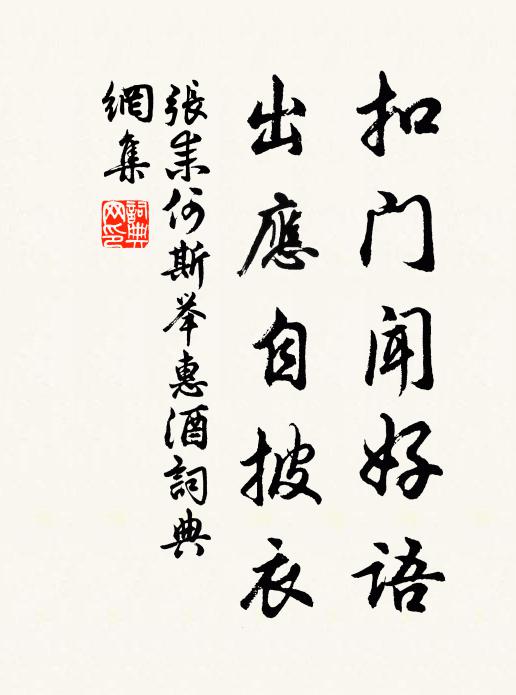 扣门闻好语
出應自披衣
張耒何斯举惠酒詞典
網集
詞典
网印